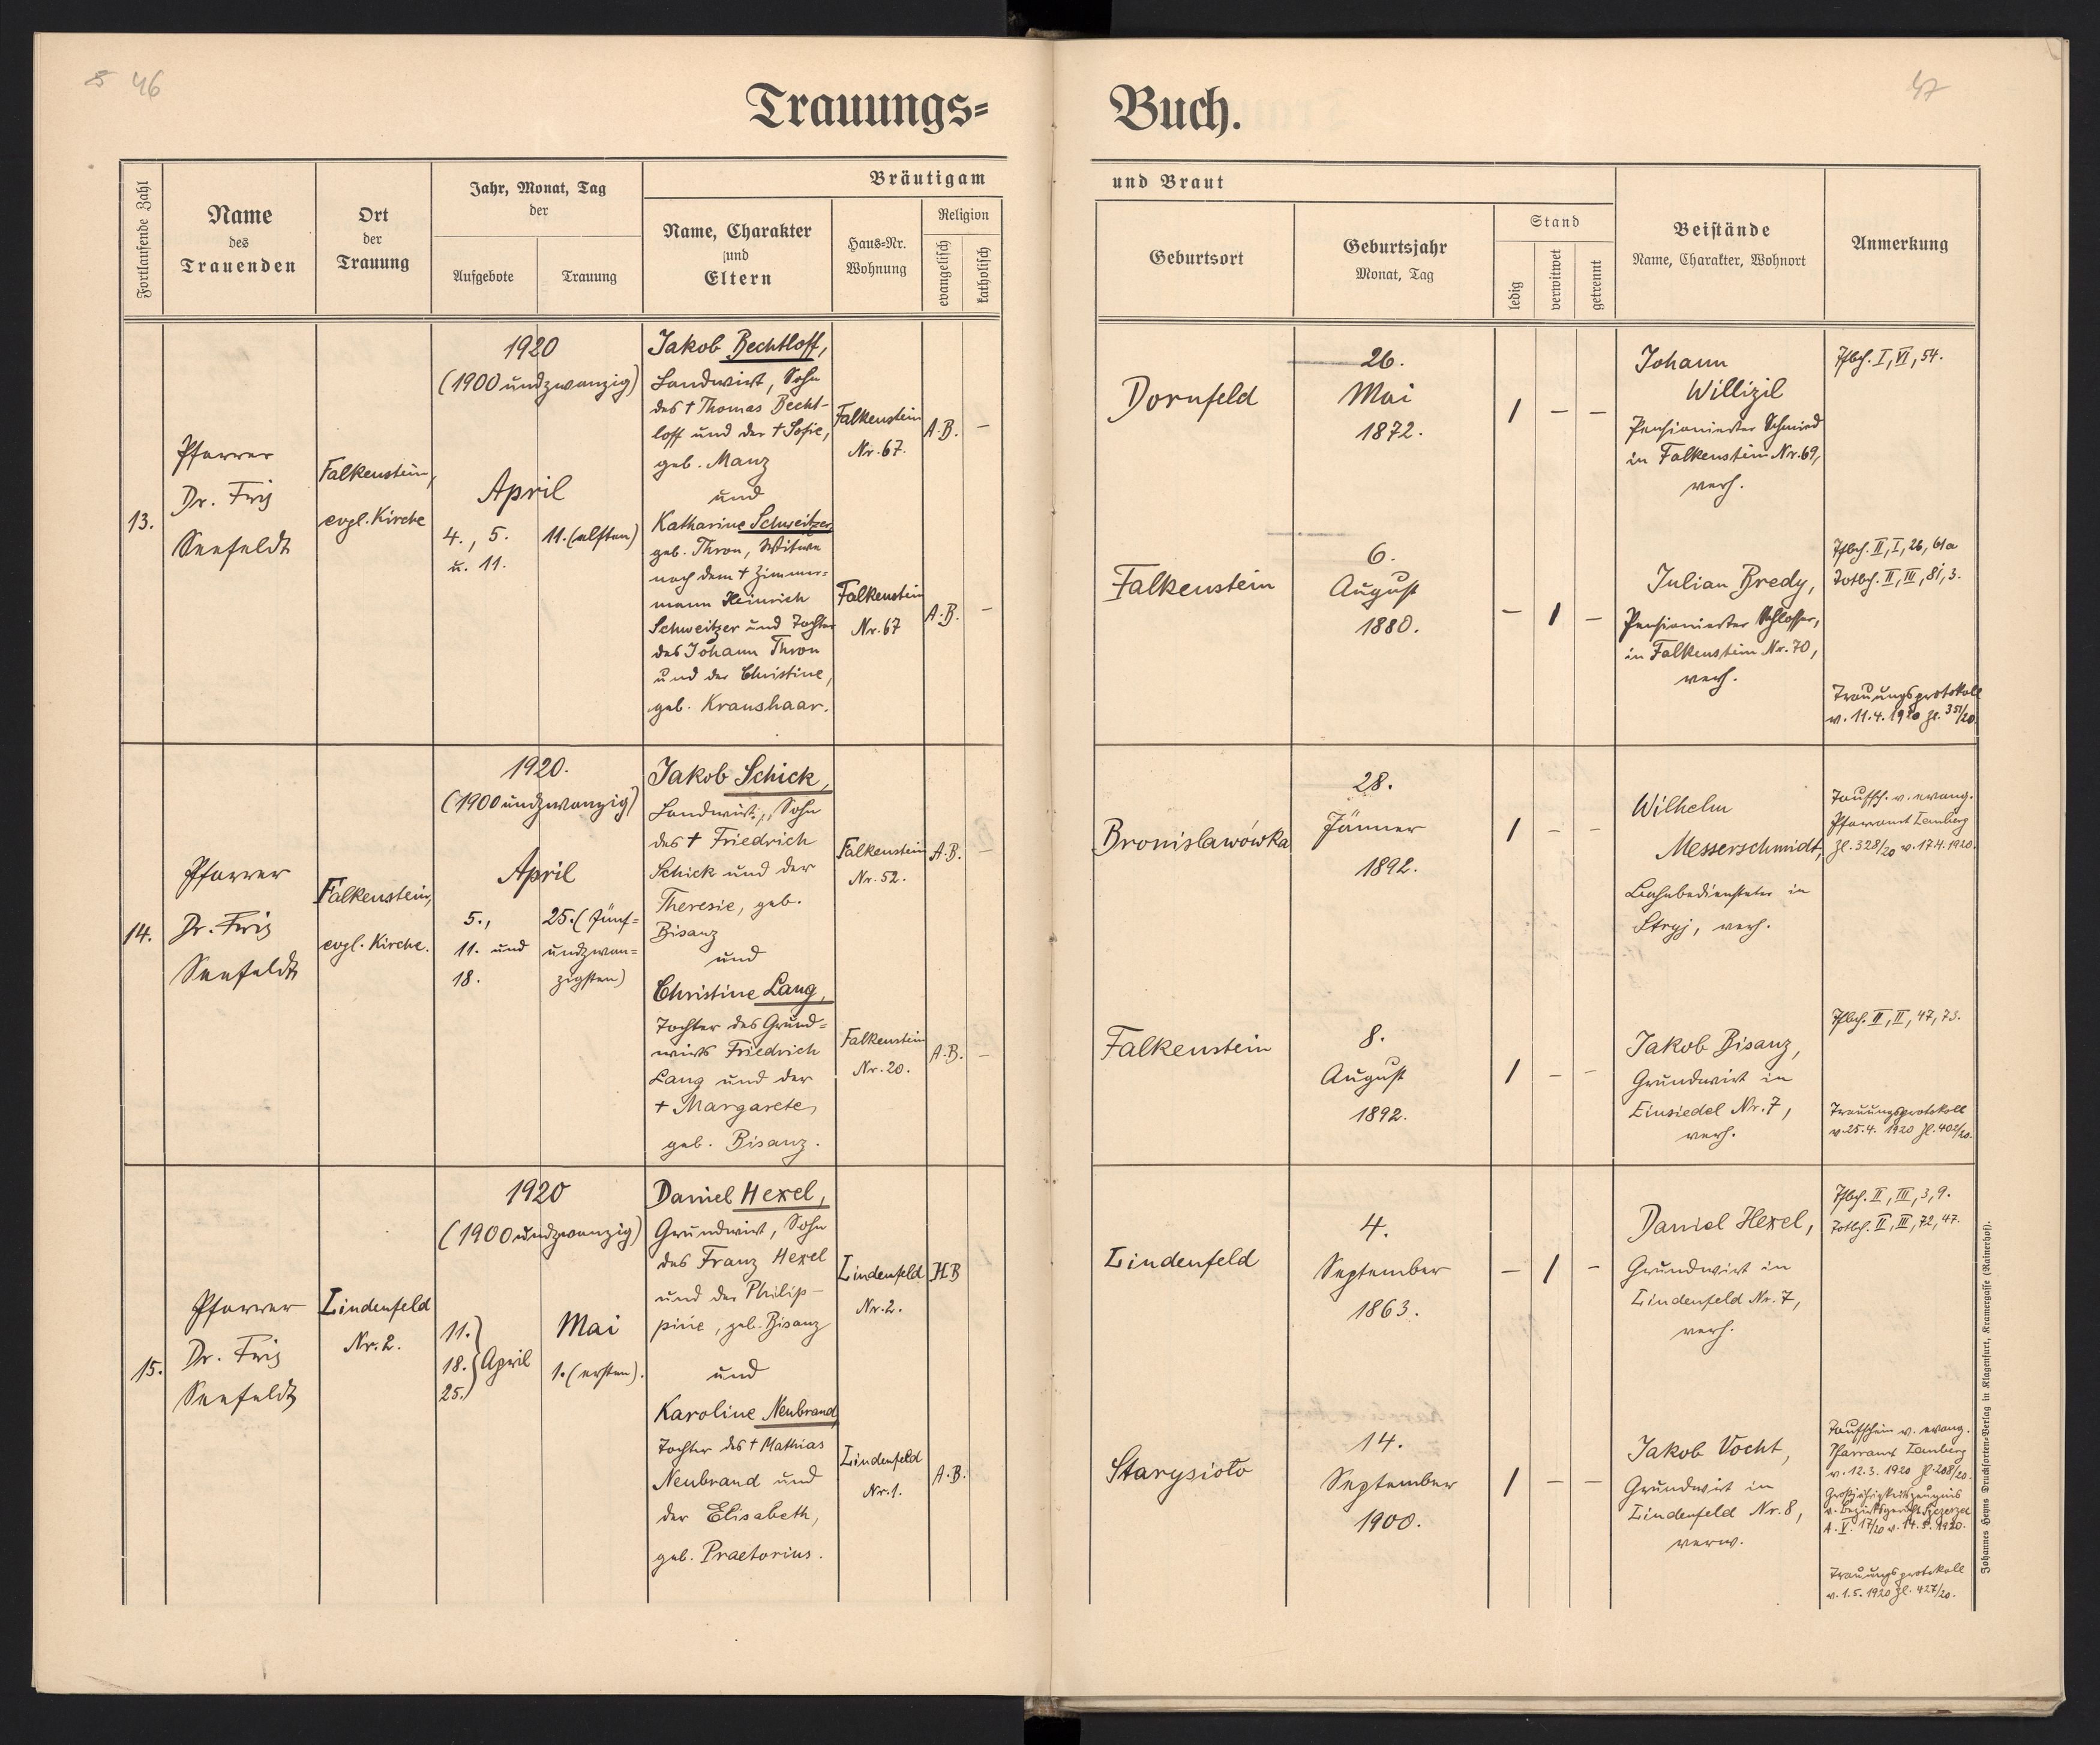 5 46
47
Trauungs=
Buch.
Fortlaufende Zahl
Name
des
Trauenden
Ort
der
Trauung
Jahr, Monat, Tag
der
Aufgebote
Trauung
Bräutigam
Name, Charakter
und
Eltern
Haus=Nr.
Wohnung
Religion
evangelisch
katholisch
und Braut
Geburtsort
Geburtsjahr
Monat, Tag
Stand
ledig
verwitwet
getrennt
Beistände
Name, Charakter, Wohnort
Anmerkung
13.
Pfarrer
Dr. Fritz
Seefeldt
Falkenstein,
evgl. Kirche
1920
(1900 undzwanzig)
April
4., 5.
u. 11.
11. (elften)
Jakob Bechtloff,
Landwirt, Sohn
des † Thomas Becht-
loff und der † Sofie,
geb. Manz
und
Katharine Schweitzer,
geb. Thron, Witwe
nach dem † Zimmer=
mann Heinrich
Schweitzer und Tochter
des Johann Thron
und der Christine,
geb. Kraushaar.
Falkenstein
Nr. 67.
A.B. –
Falkenstein
Nr. 67
A.B. –
Dornfeld
26.
Mai
1872.
1 – –
Johann
Willizil
Pensionierter Schmied
in Falkenstein Nr. 69,
verh.
Tfbch. I, VI, 54.
Falkenstein
6.
August
1880.
– 1 –
Julian Bredy,
Pensionierter Schlosser,
in Falkenstein Nr. 70,
verh.
Tfbch. II, I, 26, 61a
Totbch. II, III, 81, 3.
Trauungsprotokoll
v. 11.4. 1920 Zl. 351/20.
14.
Pfarrer
Dr. Fritz
Seefeldt
Falkenstein,
evgl. Kirche.
1920.
(1900 undzwanzig)
April
5.,
11. und
18.
25. (fünf=
undzwan=
zigsten)
Jakob Schick,
Landwirt, Sohn
des † Friedrich
Schick und der
Theresie, geb.
Bisanz
und
Christine Lang,
Tochter des Grund=
wirts Friedrich
Lang und der
† Margarete,
geb. Bisanz.
Falkenstein
Nr. 52.
A.B. –
Falkenstein
Nr. 20.
A.B. –
Bronisławówka
28.
Jänner
1892.
1 – –
Wilhelm
Messerschmidt,
Bahnbediensteter in
Stryj, verh.
Taufsch. v. evang.
Pfarramt Lemberg
Zl. 328/20 v. 17.4. 1920.
Falkenstein
8.
August
1892.
1 – –
Jakob Bisanz,
Grundwirt in
Einsiedel Nr. 7,
verh.
Tfbch. II, II, 47, 73.
Trauungsprotokoll
v. 25.4. 1920 Zl. 402/20.
15.
Pfarrer
Dr. Fritz
Seefeldt
Lindenfeld
Nr. 2.
1920
(1900 undzwanzig)
11.
18. April
25.
Mai
1. (ersten).
Daniel Hexel,
Grundwirt, Sohn
des Franz Hexel
und der Philip-
pine, geb. Bisanz
und
Karoline Neubrand,
Tochter des † Mathias
Neubrand und
der Elisabeth,
geb. Praetorius.
Lindenfeld
Nr. 2.
HB
Lindenfeld
Nr. 1.
A.B.
Lindenfeld
4.
September
1863.
– 1 –
Daniel Hexel,
Grundwirt in
Lindenfeld Nr. 7,
verh.
Tfbch. II, III, 3, 9.
Totbch. II, III, 72, 47.
Starysioło
14.
September
1900.
1 – –
Jakob Vocht,
Grundwirt in
Lindenfeld Nr. 8,
verw.
Taufschein v. evang.
Pfarramt Lemberg
v. 12.3. 1920 Zl. 208/20.
Großjährigkeitszeugnis
v. Bezirksgericht Szczerzec
A. V. 17/20 v. 14.3. 1920.
Trauungsprotokoll
v. 1.5. 1920 Zl. 427/20.
Johannes Heyns Drucksorten=Verlag in Klagenfurt, Kramergasse (Rainerhof).